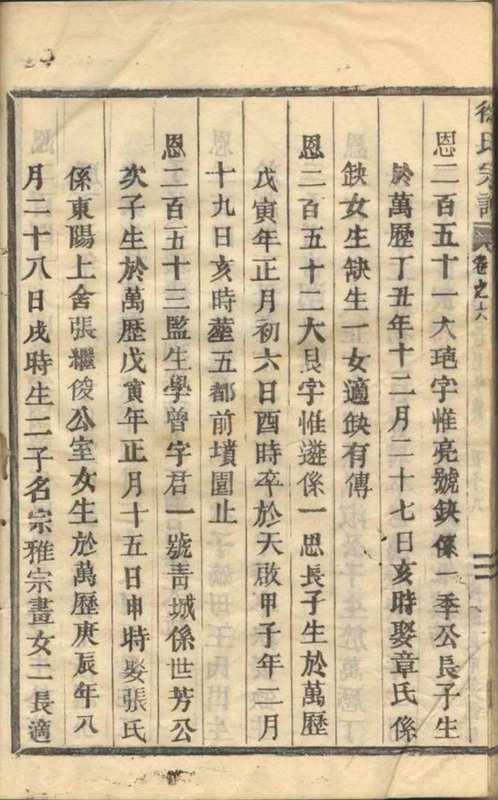 徐氏宗譜 卷之六
恩二百五十一大琦字惟亮號缺係一季公長子生
於萬歷丁丑年十二月二十七日亥時娶章氏係
缺女生缺生一女適缺有傳
恩二百五十二大艮字惟遴係一思長子生於萬歷
戊寅年正月初六日酉時卒於天啟甲子年二月
十九日亥時塟五都前墳園止
恩二百五十三監生學曾字君一號青城係世芳公
次子生於萬歷戊寅年正月十五日申時娶張氏
係東陽上舍張繼俊公室女生於萬歷庚辰年八
月二十八日戌時生二子名宗雅宗畫女二長適